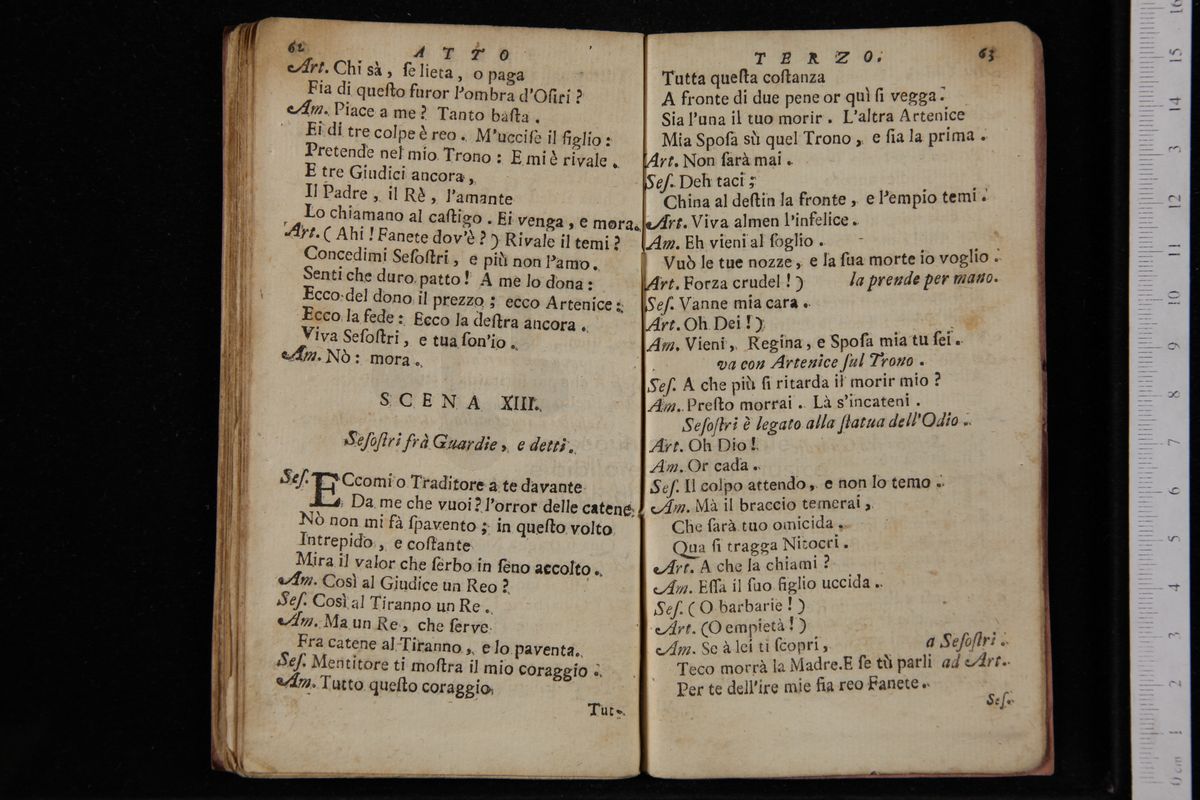 62
ATTO
Art. Chi sà, ſe lieta, o paga
Fia di queſto furor l'ombra d'Oſiri?
Am. Piace a me? Tanto baſta.
Ei di tre colpe è reo. M'ucciſe il figlio:
Pretende nel mio Trono: E mi è rivale.
E tre Giudici ancora,
Il Padre, il Rè, l'amante
Lo chiamano al caſtigo. Ei venga, e mora.
Art. (Ahi! Fanete dov'è?) Rivale il temi?
Concedimi Seſoſtri, e più non l'amo.
Senti che duro patto! A me lo dona:
Ecco del dono il prezzo; ecco Artenice:
Ecco la fede: Ecco la deſtra ancora.
Viva Seſoſtri, e tua ſon'io.
Am. Nò: mora.
SCENA XIII.
Seſoſtri frà Guardie, e detti.
Seſ. ECcomi o Traditore a te davante
Da me che vuoi? l'orror delle catene
Nò non mi fà ſpavento; in queſto volto
Intrepido, e coſtante
Mira il valor che ſerbo in ſeno accolto.
Am. Così al Giudice un Reo?
Seſ. Così al Tiranno un Re.
Am. Ma un Re, che ſerve
Fra catene al Tiranno, e lo paventa.
Seſ. Mentitore ti moſtra il mio coraggio.
Am. Tutto queſto coraggio,
Tut-
TERZO.
63
Tutta queſta coſtanza
A fronte di due pene or quì ſi vegga.
Sia l'una il tuo morir. L'altra Artenice
Mia Spoſa sù quel Trono, e ſia la prima.
Art. Non ſarà mai.
Seſ. Deh taci;
China al deſtin la fronte, e l'empio temi.
Art. Viva almen l'infelice.
Am. Eh vieni al ſoglio.
Vuò le tue nozze, e la ſua morte io voglio.
Art. Forza crudel!) la prende per mano.
Seſ. Vanne mia cara.
Art. Oh Dei!)
Am. Vieni, Regina, e Spoſa mia tu ſei.
va con Artenice ſul Trono.
Seſ. A che più ſi ritarda il morir mio?
Am. Preſto morrai. Là s'incateni.
Seſoſtri è legato alla ſtatua dell'Odio.
Art. Oh Dio!
Am. Or cada.
Seſ. Il colpo attendo, e non lo temo.
Am. Mà il braccio temerai,
Che ſarà tuo omicida.
Qua ſi tragga Nitocri.
Art. A che la chiami?
Am. Eſſa il ſuo figlio uccida.
Seſ. (O barbarie!)
Art. (O empietà!)
Am. Se à lei ti ſcopri, a Seſoſtri.
Teco morrà la Madre. E ſe tù parli ad Art.
Per te dell'ire mie fia reo Fanete.
Seſ.
0 cm 1 2 3 4 5 6 7 8 9 10 11 12 13 14 15 16